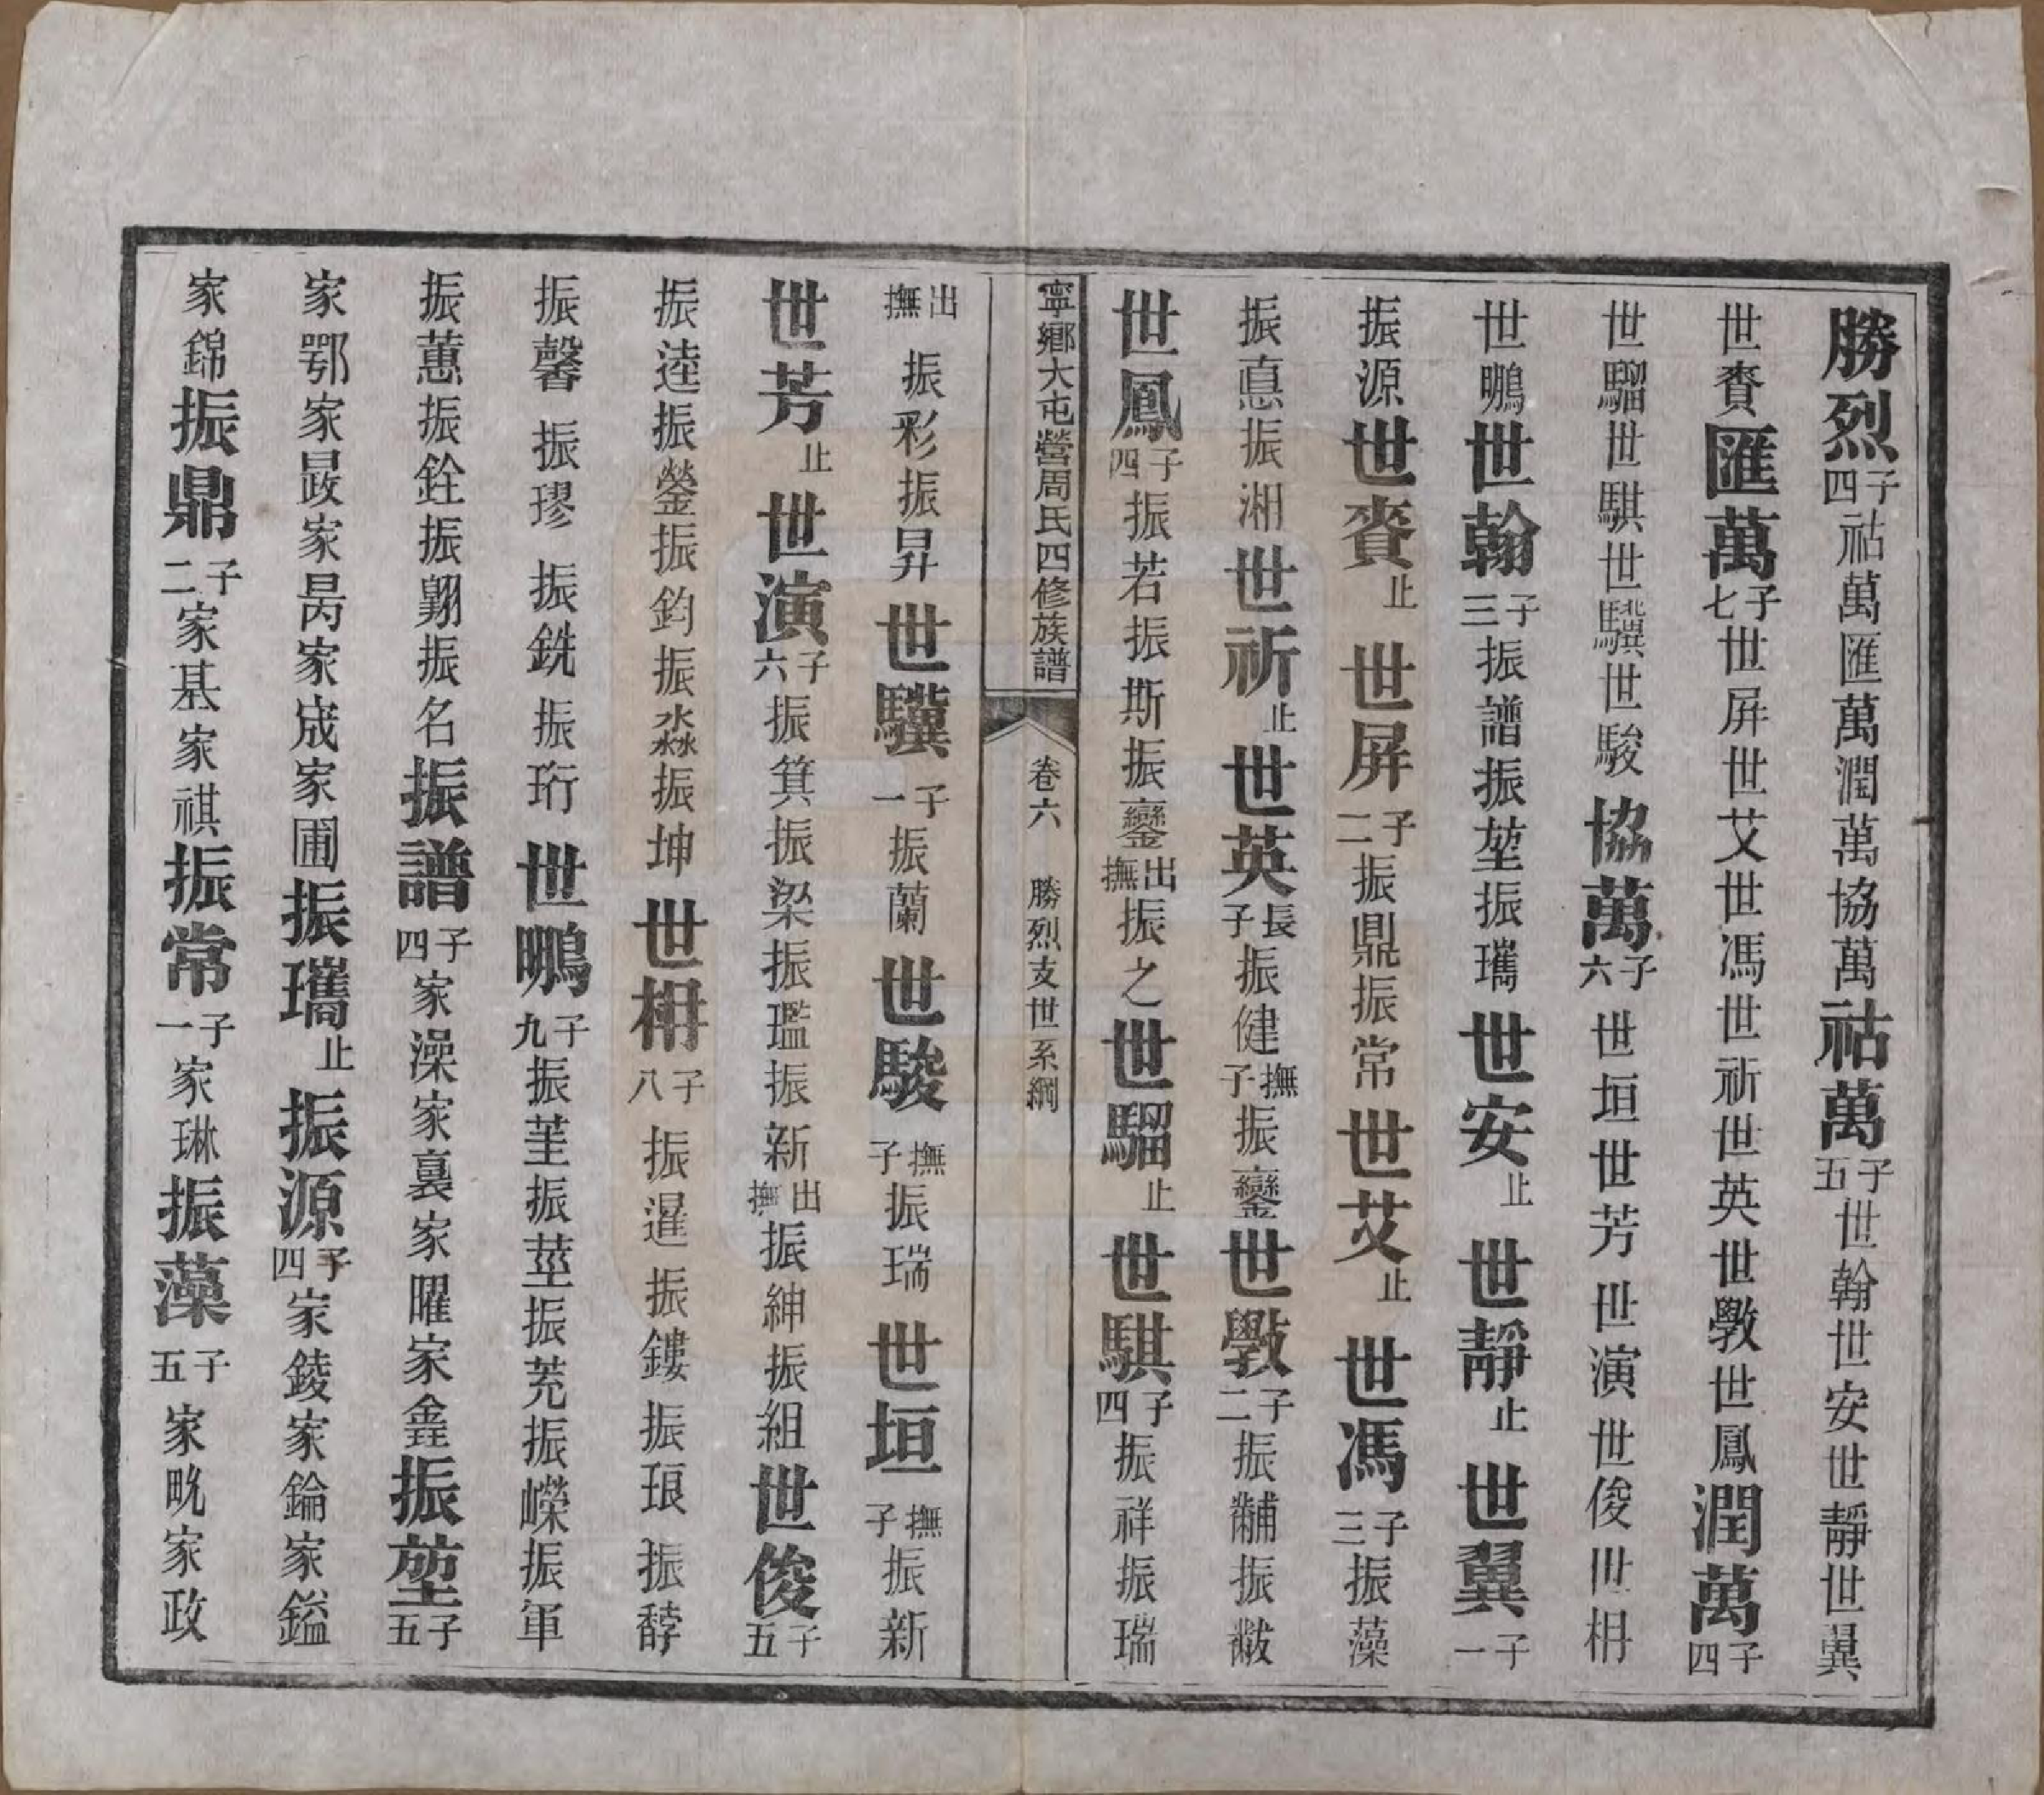 勝烈子四祜萬匯萬潤萬協萬祜萬子五世翰世安世靜世翼
世賚匯萬子七世屏世艾世馮世祈世英世斆世鳳潤萬子四
世騮世騏世驥世駿協萬子六世垣世芳世演世俊世枏
世鵬世翰子三振譜振堃振瓗世安止世靜止世翼子一
振源世賚止世屏子二振鼎振常世艾止世馮子三振藻
振惪振湘世祈止世英長子振健撫子振鑾世斆子二振黼振黻
世鳳子四振若振斯振鑾出撫振之世騮止世騏子四振祥振瑞
寧鄉大屯營周氏四修族譜
卷六 勝烈支世系綱
出撫振彩振昇世驥子一振蘭世駿撫子振瑞世垣撫子振新
世芳止世演子六振箕振梁振瓛振新出撫振紳振組世俊子五
振逵振鎣振鈞振淼振坤世枏子八振暹振鏤振琅振馞
振馨振璆振銑振珩世鵬子九振荃振莖振茺振嶸振軍
振蕙振銓振翺振名振譜子四家澡家裏家曜家鑫振堃子五
家鄂家晸家昺家宬家圃振瓗止振源子四家錂家錀家鎰
家錦振鼎子二家基家祺振常子一家琳振藻子五家畯家政